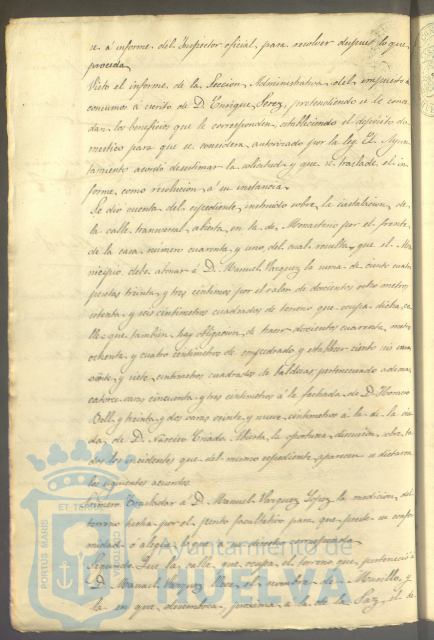 se á informe del Inspector oficial para resolver despues lo que
proceda
Visto el informe de la Seccion Administrativa del impuesto de
consumos á escrito de D. Enrique Perez, pretendiendo se le conce-
dan los beneficios que le corresponden, estableciendo el depósito do-
mestico para que se considera autorizado por la ley. El Ayun-
tamiento acordó desestimar la solicitud y que se traslade el in-
forme, como resolucion á su instancia
Se dio cuenta del espediente instruido sobre la
la calle tranversal abierta en la de Monasterio por el frente
de la casa número cuarenta y uno, del cual resulta que el Mu-
nicipio debe abonar á D. Manuel Vazquez la suma de ciento cuatro
pesetas treinta y tres céntimos por el valor de doscientos ocho metros
setenta y seis centimetros cuadrados de terreno que ocupa dicha ca-
lle que tambien hay obligacion de hacer doscientos cuarenta metros
ochenta y cuatro centimetros de empedrado y establecer ciento
y siete centimetros cuadrados de baldosas perteneciendo ademas
catorce varas cincuenta y tres centimetros á la fachada de D.
y treinta y dos varas veinte y nueve centimetros á la de la viu-
da de D. Narciso Criado. Abierta la oportuna discusion sobre to-
dos los incidentes que del mismo espediente aparecen se dictaron
los siguientes acuerdos
Primero Trasladar á D. Manuel Vazquez Lopez la medicion del
terreno hecha por el perito facultativo para que preste su confor-
midad ó alegue lo que á su derecho corresponda
Segundo Que la calle que ocupa el terreno que perteneció á
D. Manuel Vazquez lleve el nombre de y
la en que desemboca, próxima á la de la Paz, el de
PORTUS MARIS
ET TERRÆ
Ayuntamiento de
HUELVA